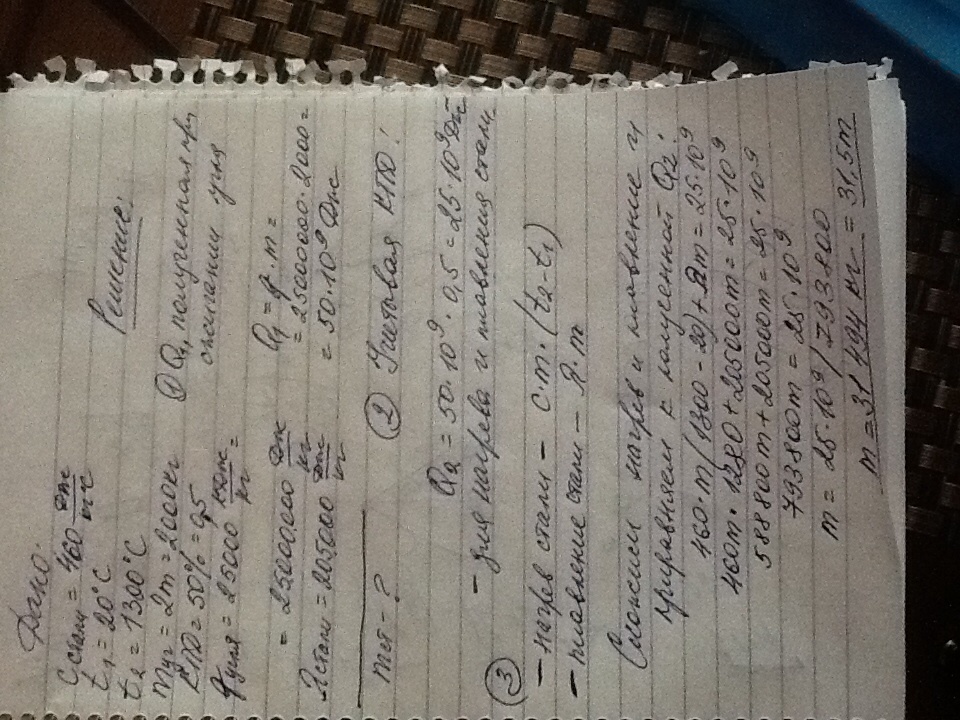 Дано:
C стали = 460 Дж/кг°C
t₁ = 20°C
t₂ = 1300°C
mуг = 2т = 2000кг
КПД = 50% = 0,5
qугля = 25000 кДж/кг =
= 25000000 Дж/кг
λстали = 205000 Дж/кг
mст - ?
Решение:
① Q₁, полученная при
сжигании угля
Q₁ = q·m =
= 25000000·2000 =
= 50·10⁹ Дж
② Учитывая КПД:
Q₂ = 50·10⁹·0,5 = 25·10⁹ Дж
– для нагрева и плавления стали.
③
– нагрев стали – c·m·(t₂-t₁)
– плавление стали – λ·m
Сложим нагрев и плавление и
приравняем к полученной Q₂:
460·m(1300-20)+λm = 25·10⁹
460m·1280+205000m = 25·10⁹
588800m+205000m = 25·10⁹
793800m = 25·10⁹
m = 25·10⁹/793800
m = 31494 кг = 31,5т